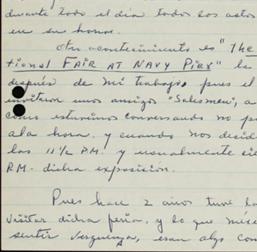 durante todo el día todos los actos
en su honor.
Otro acontecimiento es "The
tional FAIR AT NAVY PIER" la
después de mi trabajo, pues el
invitaron unos amigos "Salesmen", a
como estuvimos conversando no
a la hora y cuando nos decid
las 11½ P.M. y usualmente
P.M. dicha exposición.
Pues hace 2 años tuve la
visitar dicha feria, y lo que
sentir vergüenza, eran algo